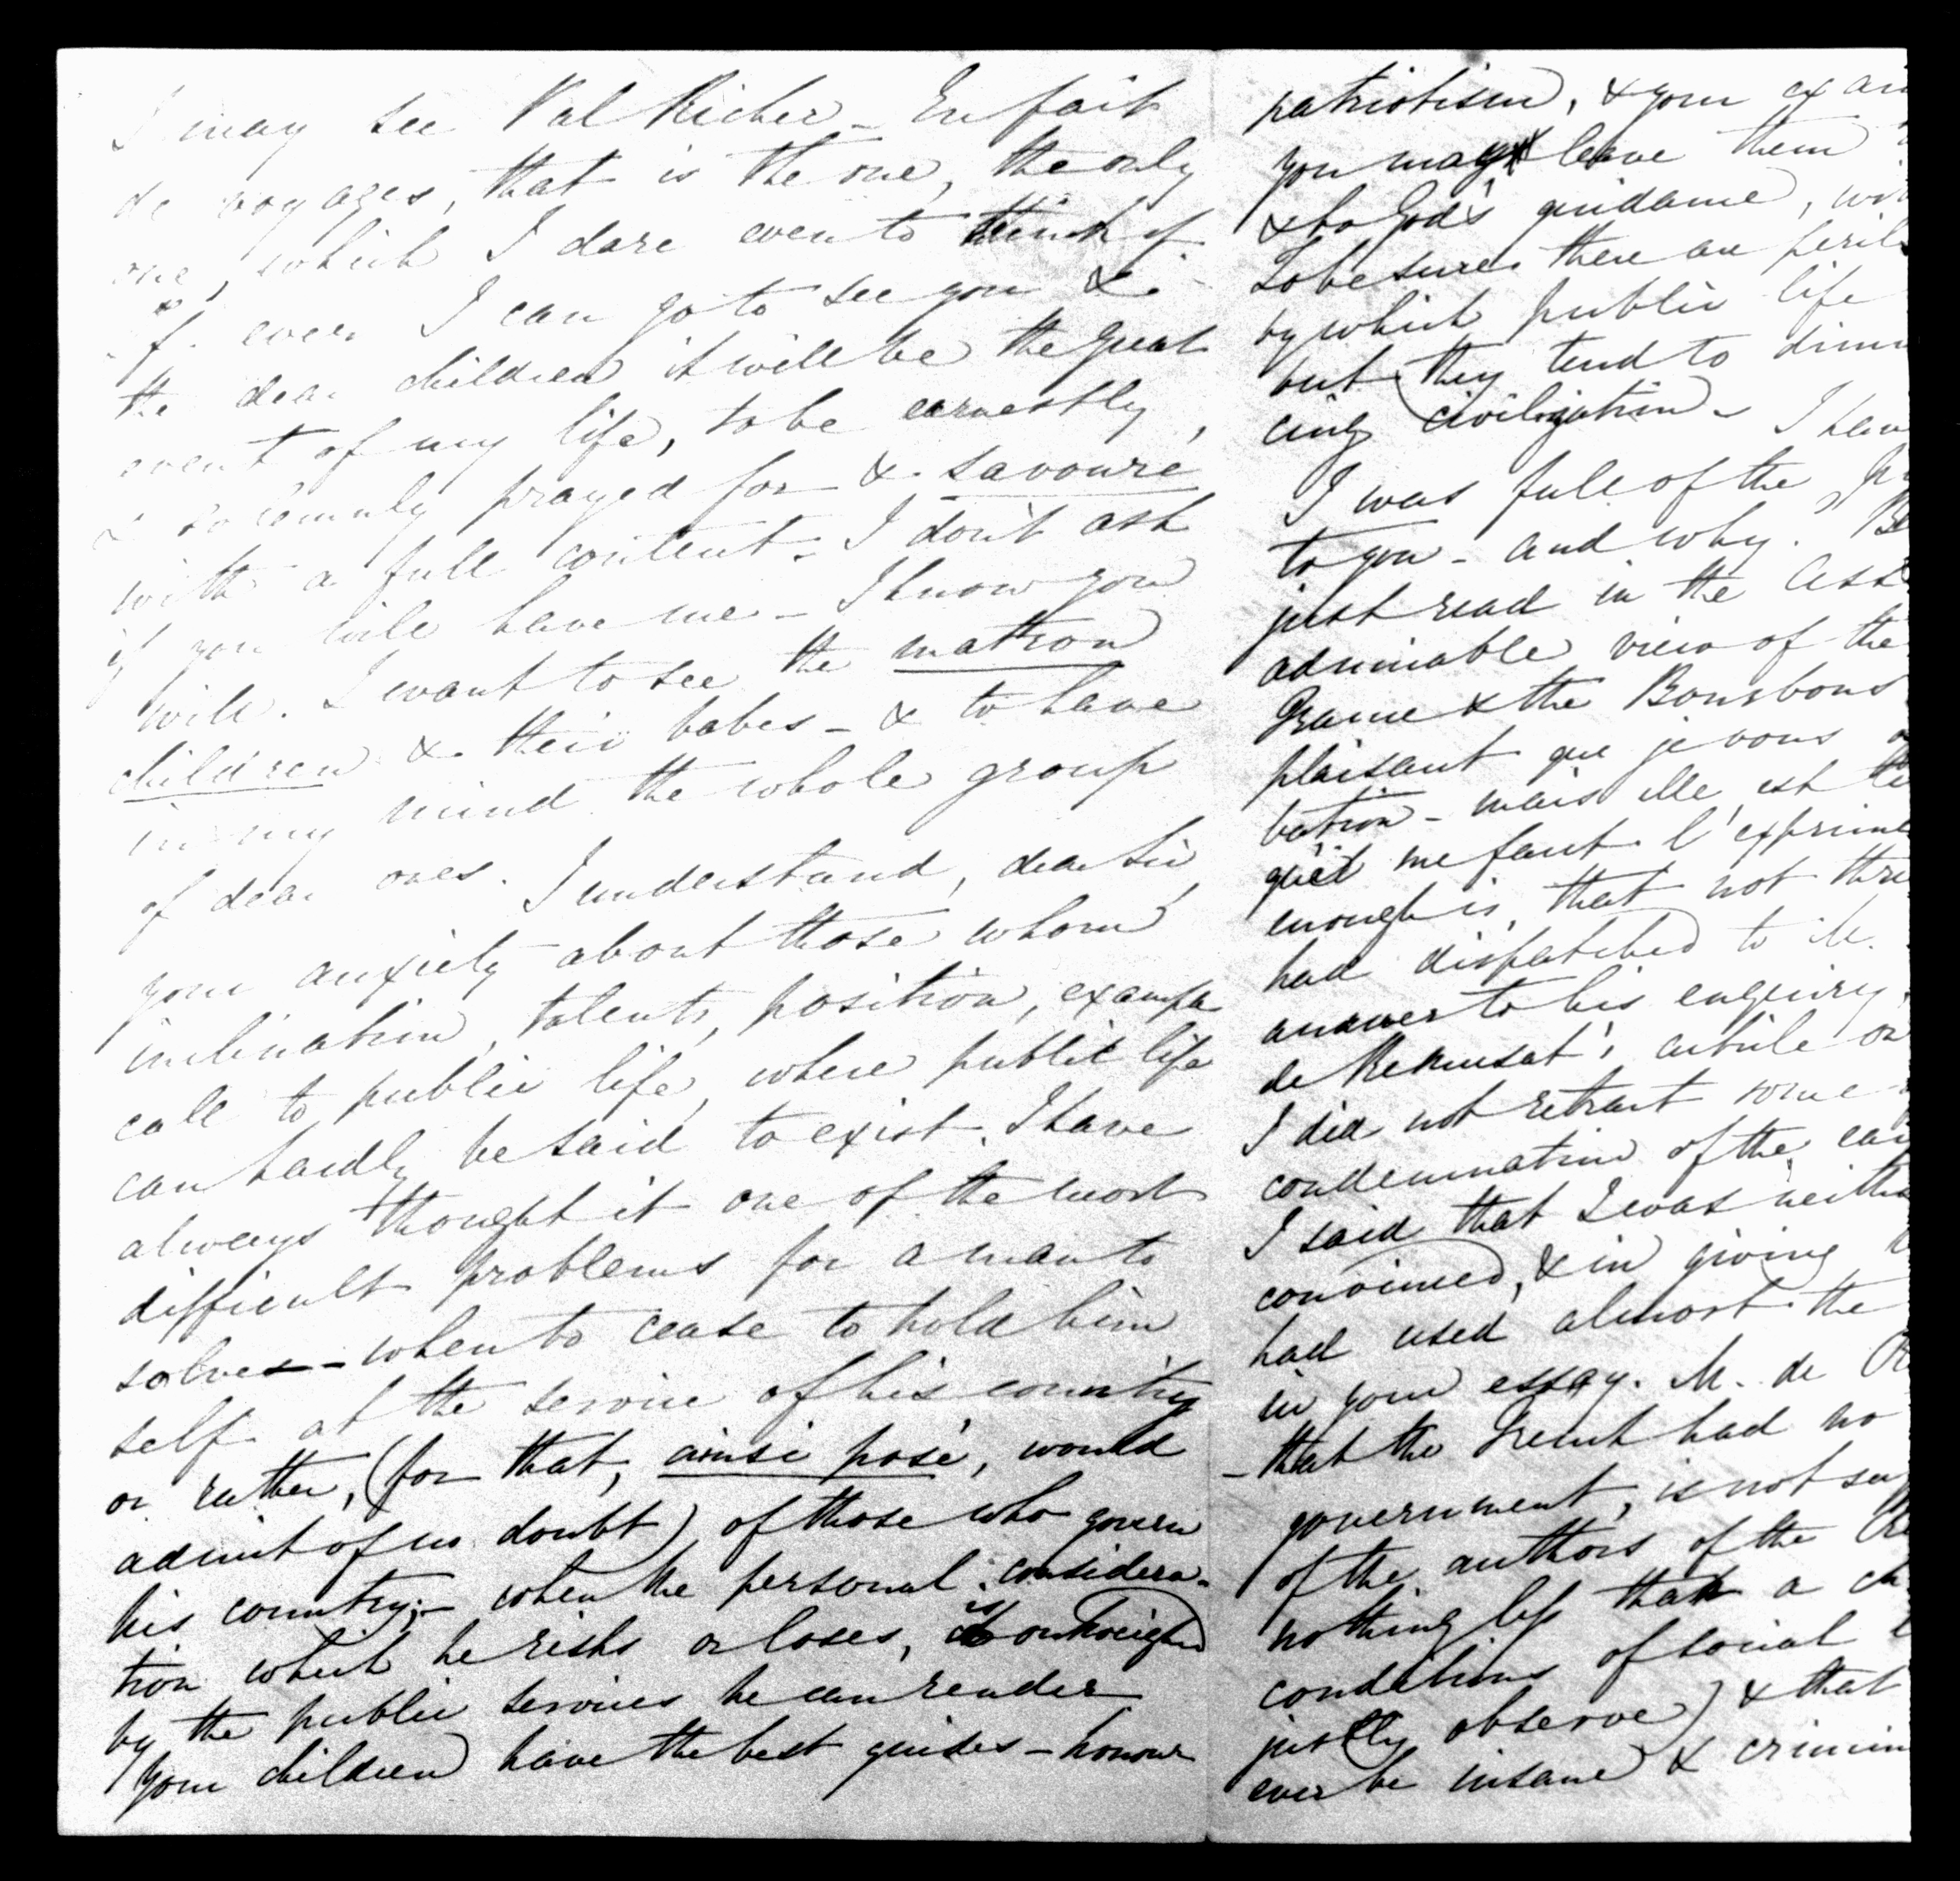 I may see Val Richer – En fait
de voyages, that is the one, the only
one, which I dare even to think of
If ever I can go to see you &
the dear children it will be the great
event of my life, to be earnestly,
& solemnly prayed for & savouré
with a full content. I don't ask
if you will have me – I know you
will. I want to see the matron
children & their babes – & to have
in my mind the whole group
of dear ones. I understand, dear Sir
your anxiety about those whom
inclination, talents, position, example
call to public life, where public life
can hardly be said to exist. I have
always thought it one of the most
difficult problems for a man to
solve – when to cease to hold him
self at the service of his country
or rather, (for that, ainsi posé, would
admit of no doubt) of those who govern
his country; – when the personal considera-
tion which he risks or loses, is outweighed
by the public services he can render
Your children have the best guides – honour
patriotism, & your exam
you may leave them
& to God's guidance, wi
To be sure there are perils
by which public life
but they tend to dimin
cing civilization – I have
I was full of the
to you – and why? Be
just read in the
admirable view of the
France & the Bourbons
plaisant que je vous
bation – mais elle est
qu'il me faut l'exprime
enough is, that not thre
had dispatched to M.
answer to his enquiry,
de Remusat's article on
I did not retract some
condemnation of the
I said that I was neithe
convinced, & in giving
had used almost the
in your essay. M. de
– that the French had no
government, is not
of the authors of the
nothing less than a ch
conditions of social
justly observe) & that
ever be insane & crimin